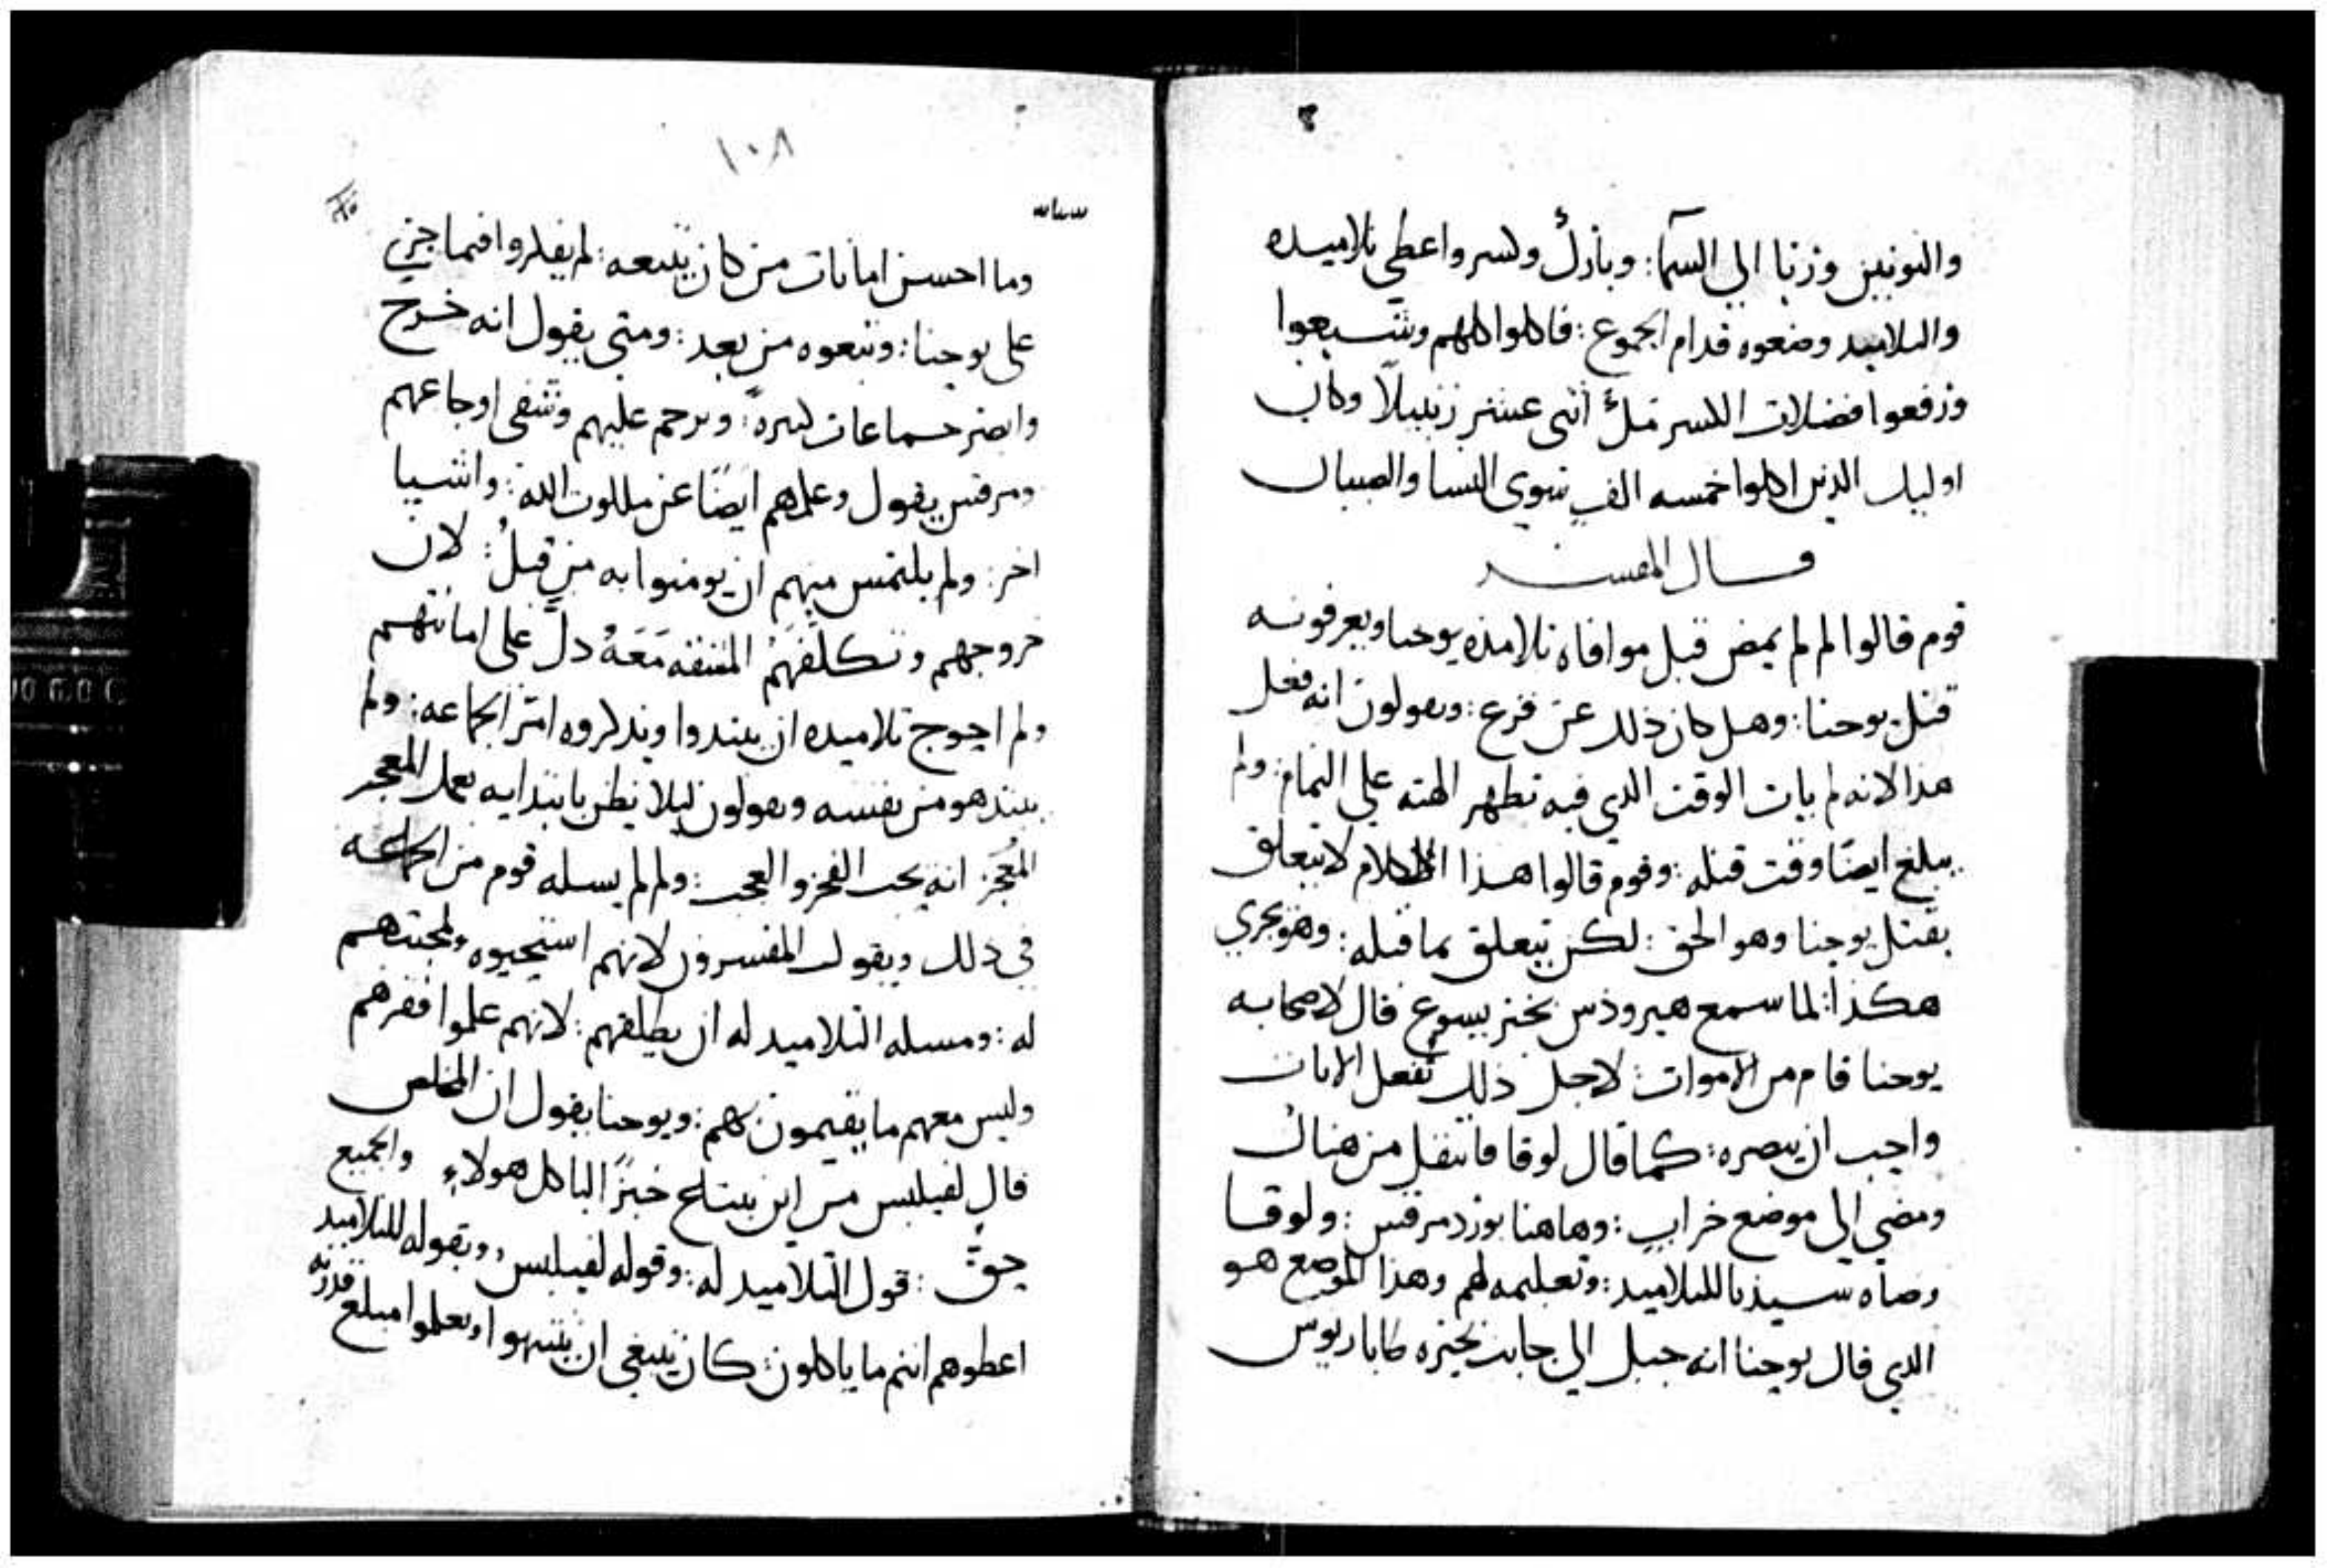 والنونين ورنا الي السما: وبارك وكسر واعطي تلاميده
والتلاميد وضعوه قدام الجموع: فاكلوا كلهم وشبعوا
ورفعوا فضلات الكسر ملء اثنى عشر زنبيلًا وكان
اوليك الدين اكلوا خمسه الف سوي النسا والصبيان
قال المفسر
قوم قالوا لم لم يمض قبل موافاه تلامذه يوحنا ويعرفونه
قتل يوحنا: وهل كان ذلك عن فزع: ويقولون انه فعل
هدا لانه لم يات الوقت الدي فيه تظهر الهته علي التمام: ولم
يبلغ ايضًا وقت قتله: وقوم قالوا هذا الكلام لا يتعلق
بقتل يوحنا وهو الحق: لكن يتعلق بما قبله: وهو يجري
هكذا: لما سمع هيروذس بخبر يسوع قال لاصحابه
يوحنا قام من الاموات: لاجل ذلك تفعل الايات
واحب ان يبصره: كما قال لوقا فانتقل من هناك
ومضي الي موضع خراب: وهاهنا يورد مرقس: ولوقا
وصاه سيدنا للتلاميد: وتعليمه لهم وهذا الموضع هو
الدي قال يوحنا انه جبل الي جانب بحيره طاباريوس
١٠٨
وما احسن امانات من كان يتبعه: لم يفكروا فيما جري
علي يوحنا: وتبعوه من بعد: ومتى يقول انه خرج
وابصر جماعات كثيرهً: وترحم عليهم وشفى اوجاعهم
ومرقس يقول وعلمهم ايضًا عن ملكوت الله: واشيا
اخر: ولم يلتمس منهم ان يومنوا به من قبل: لان
خروجهم وتكلفهم المشقه معه دل على امانتهم
ولم احوج تلاميده ان يبتدوا ويذكروه امر الجماعه: ولم
يبتد هو من نفسه ويقولون ليلا يظن بابتدايه بعمل المعجز
المعجز انه يحب الفخر والعجب: ولم لم يسله قوم من الجماعه
في ذلك ويقول المفسرون لانهم استحيوه ولمحبتهم
له: ومسله التلاميد له ان يطلقهم: لانهم علموا فقرهم
وليس معهم ما يقيمون بهم: ويوحنا يقول ان المخلص
قال لفيلبس من اين نبتاع خبزًا لياكل هولاء والجميع
حق: قول التلاميد له: وقوله لفيلبس: وبقوله للتلاميد
اعطوهم انتم ما ياكلون: كان ينبغي ان ينتبهوا ويعلموا مبلغ قدرته